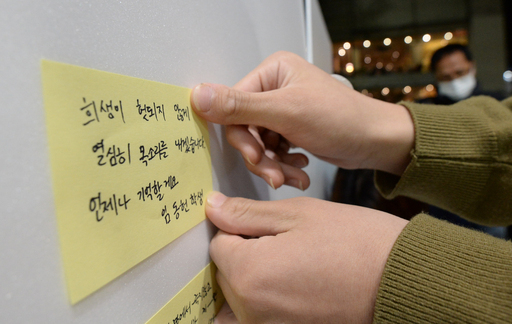 희생이 헛되지 않게
열심히 목소리를 내겠습니다
언제나 기억할게요
임동헌 학생